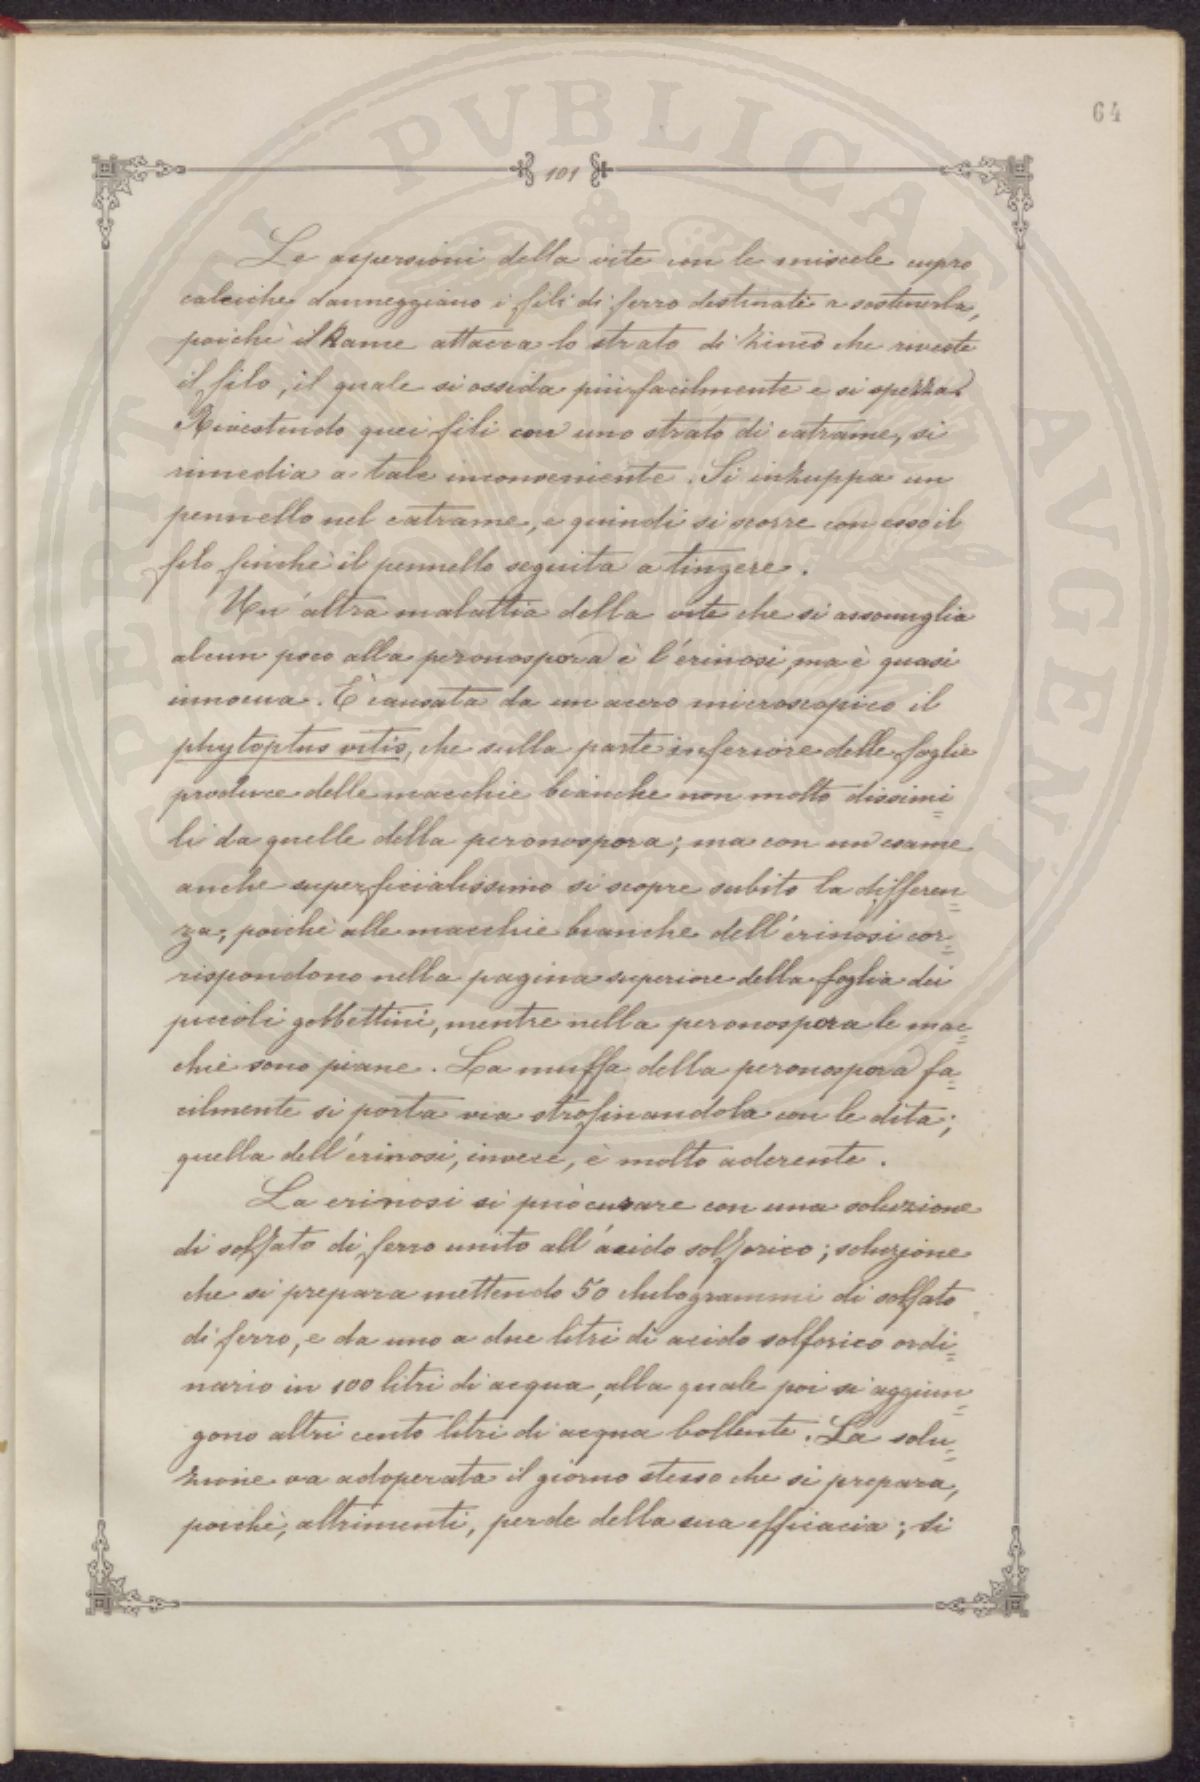 64
101
Le aspersioni della vite con le miscele cupro
calciche danneggiano i fili di ferro destinati a sostenerla,
poichè il Rame attacca lo strato di zinco che riveste
il filo, il quale si ossida più facilmente e si spezza.
Rivestendo quei fili con uno strato di catrame, si
rimedia a tale inconveniente. Si inzuppa un
pennello nel catrame, e quindi si scorre con esso il
filo finchè il pennello seguita a tingere.
Un'altra malattia della vite che si assomiglia
alcun poco alla peronospora è l'érinosi, ma è quasi
innocua. È causata da un acero microscopico il
phytoptus vitis, che sulla parte inferiore delle foglie
produce delle macchie bianche non molto dissimi=
li da quelle della peronospora; ma con un esame
anche superficialissimo si scopre subito la differen=
za; poichè alle macchie bianche dell'érinosi cor=
rispondono nella pagina superiore della foglia dei
piccioli gobbettini, mentre nella peronospora le mac=
chie sono piane. La muffa della peronospora fa=
cilmente si porta via strofinandola con le dita;
quella dell'érinosi, invece, è molto aderente.
La erinosi si può curare con una soluzione
di solfato di ferro unito all'ácido solforico; soluzione
che si prepara mettendo 50 chilogrammi di solfato
di ferro, e da uno a due litri di acido solforico ordi=
nario in 100 litri di acqua, alla quale poi si aggiun=
gono altri cento litri di acqua bollente. La solu=
zione va adoperata il giorno stesso che si prepara,
poichè, altrimenti, perde della sua efficacia; si
PERITATI PVBLICAE AVGENDAE